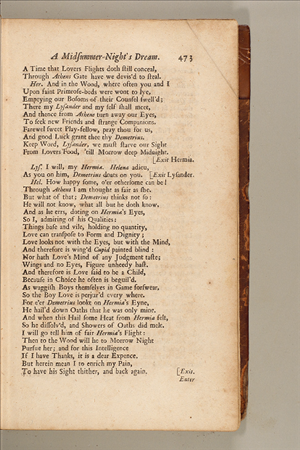 A Midsummer-Night's Dream. 473
A Time that Lovers Flights doth still conceal,
Through Athens Gate have we devis'd to steal.
Her. And in the Wood, where often you and I
Upon faint Primrose-beds were wont to lye,
Emptying our Bosoms of their Counsel swell'd;
There my Lysander and my self shall meet,
And thence from Athens turn away our Eyes,
To seek new Friends and strange Companions.
Farewel sweet Play-fellow, pray thou for us,
And good Luck grant thee thy Demetrius.
Keep Word, Lysander, we must starve our Sight
From Lovers Food, 'till Morrow deep Midnight.
[Exit Hermia.
Lys. I will, my Hermia. Helena adieu,
As you on him, Demetrius doats on you. [Exit Lysander.
Hel. How happy some, o'er othersome can be!
Through Athens I am thought as fair as she.
But what of that; Demetrius thinks not so:
He will not know, what all but he doth know,
And as he errs, doting on Hermia's Eyes,
So I, admiring of his Qualities:
Things base and vile, holding no quantity,
Love can transpose to Form and Dignity;
Love looks not with the Eyes, but with the Mind,
And therefore is wing'd Cupid painted blind:
Nor hath Love's Mind of any Judgment taste;
Wings and no Eyes, Figure unheedy hast.
And therefore is Love said to be a Child,
Because in Choice he often is beguil'd.
As waggish Boys themselves in Game forswear,
So the Boy Love is perjur'd every where.
For e'er Demetrius lookt on Hermia's Eyne,
He hail'd down Oaths that he was only mine.
And when this Hail some Heat from Hermia felt,
So he dissolv'd, and Showers of Oaths did melt.
I will go tell him of fair Hermia's Flight:
Then to the Wood will he to Morrow Night
Pursue her; and for this Intelligence
If I have Thanks, it is a dear Expence.
But herein mean I to enrich my Pain,
To have his Sight thither, and back again. [Exit.
Enter